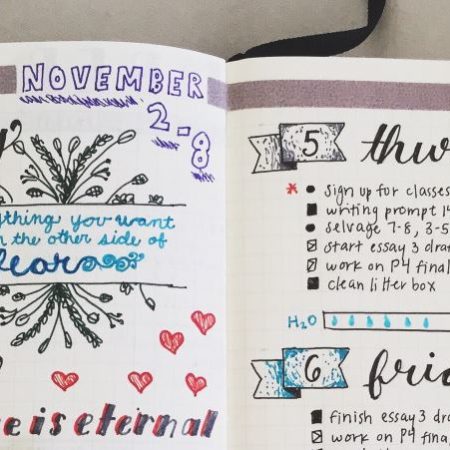 NOVEMBER
2-8
you want
the other side of
fear
is eternal
5
sign up for classes
writing prompt
selvage 7-8, 3-5
start essay 3
work on P4 final
clean litter box
H₂O
6
finish essay 3
work on P4